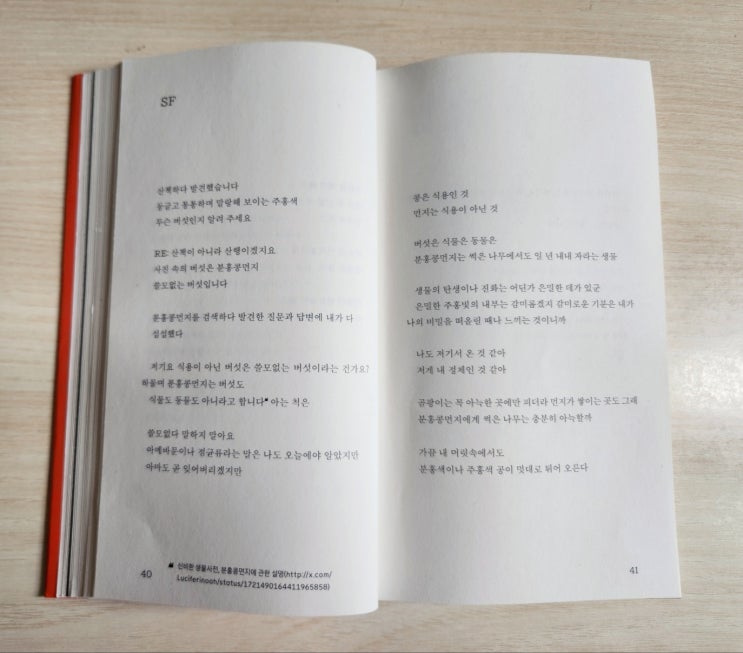 SF
산책하다 발견했습니다
동글고 통통하며 말랑해 보이는 주홍색
무슨 버섯인지 알려 주세요
RE: 산책이 아니라 산행이겠지요
사진 속의 버섯은 분홍콩먼지
쓸모없는 버섯입니다
분홍콩먼지를 검색하다 발견한 질문과 답변에 내가 다
섭섭했다
저기요 식용이 아닌 버섯은 쓸모없는 버섯이라는 건가요?
하물며 분홍콩먼지는 버섯도
식물도 동물도 아니라고 합니다 아는 척은
쓸모없다 말하지 말아요
아메바문이나 점균류라는 말은 나도 오늘에야 알았지만
아마도 곧 잊어버리겠지만
신비한 생물사전, 분홍콩먼지에 관한 설명(http://x.com/
Luciferinoah/status/1721490164411965858)
40
콩은 식용인 것
먼지는 식용이 아닌 것
버섯은 식물은 동물은
분홍콩먼지는 썩은 나무에서도 일 년 내내 자라는 생물
생물의 탄생이나 진화는 어딘가 은밀한 데가 있군
은밀한 주홍빛의 내부는 감미롭겠지 감미로운 기분은 내가
나의 비밀을 떠올릴 때나 느끼는 것이니까
나도 저기서 온 것 같아
저게 내 정체인 것 같아
곰팡이는 꼭 아늑한 곳에만 피더라 먼지가 쌓이는 곳도 그래
분홍콩먼지에게 썩은 나무는 충분히 아늑할까
가끔 내 머릿속에서도
분홍색이나 주홍색 공이 멋대로 튀어 오른다
41